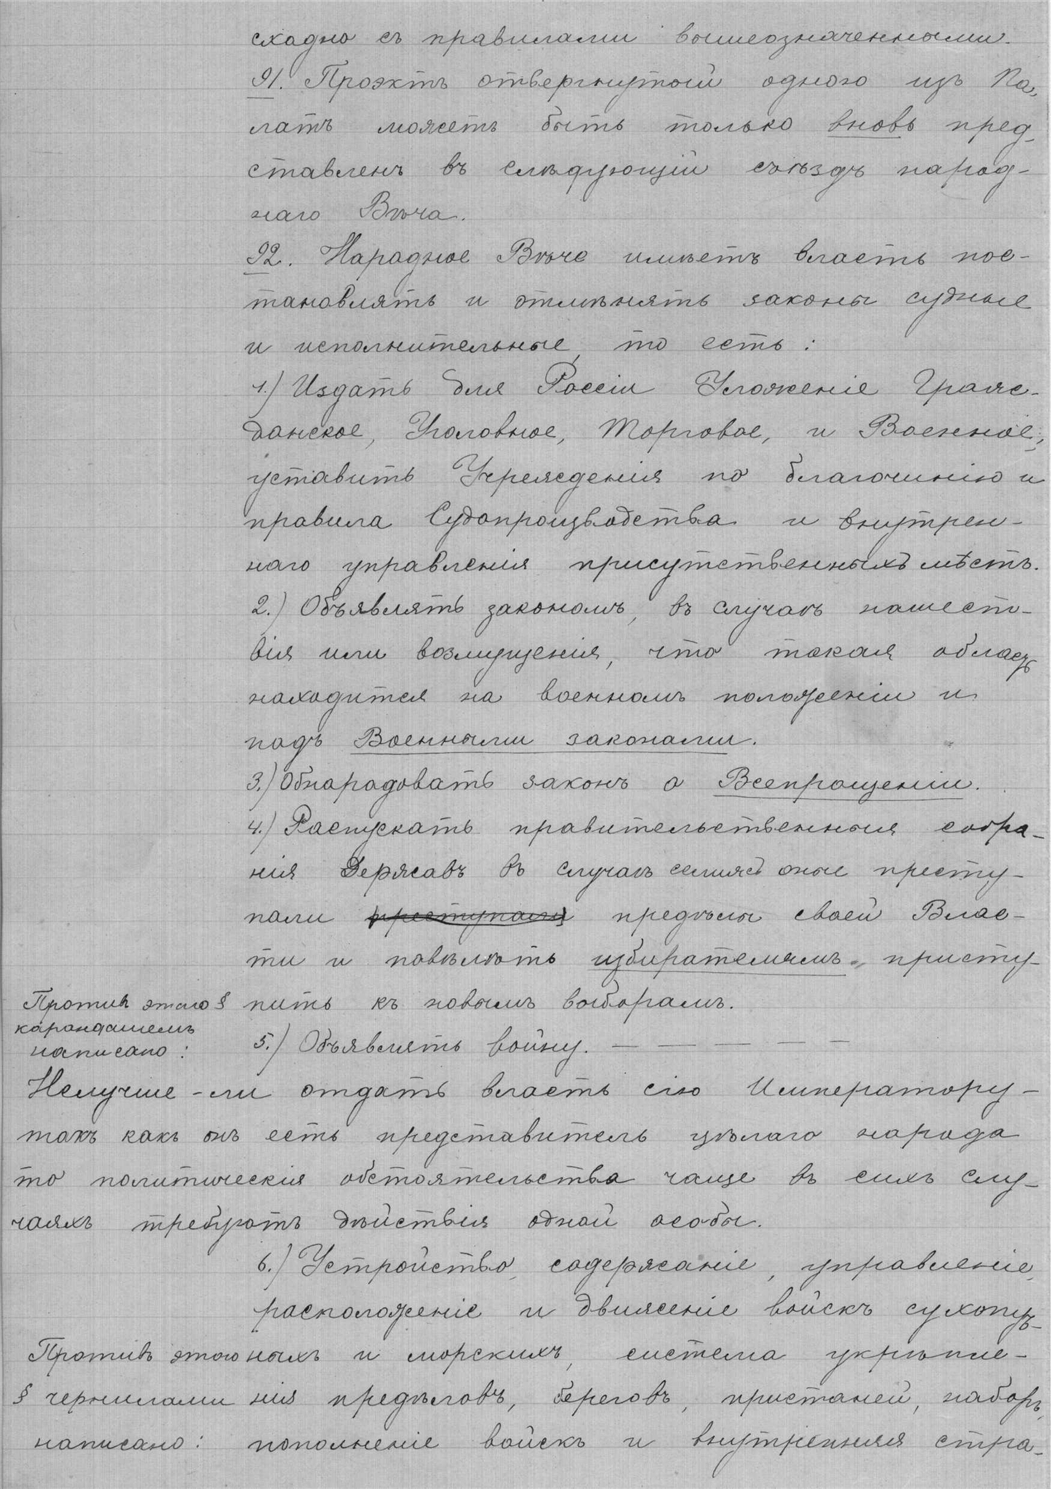 сходно съ правилами вышеозначенными.
91. Проэктъ отвергнутый одною изъ Па-
латъ можетъ быть только вновь пред-
ставленъ въ слѣдующій съѣздъ народ-
наго Вѣча.
92. Народное Вѣче имѣетъ власть пос-
тановлять и отмѣнять законы судные
и исполнительные, то есть:
1.) Издать для Россіи Уложеніе Граж-
данское, Уголовное, Торговое, и Военное,
уставить Учрежденія по благочинію и
правила Судопроизводства и внутрен-
наго управленія присутственныхъ мѣстъ.
2.) Объявлять закономъ, въ случаѣ нашест-
вія или возмущенія, что такая область
находится на военномъ положеніи и
подъ Военными законами.
3.) Обнародовать законъ о Всепрощеніи.
4.) Распускать правительственныя собра-
нія Державъ въ случаѣ если оные престу-
пали преступали предѣлы своей Влас-
ти и повѣлѣть избирателямъ присту-
Противъ этого § пить къ новымъ выборамъ.
карандашемъ
написано: 5.) Объявлять войну. — — — — —
Нелучше-ли отдать власть сію Императору-
такъ какъ онъ есть представитель цѣлаго народа
то политическія обстоятельства чаще въ сихъ слу-
чаяхъ требуютъ дѣйствія одной особы.
6.) Устройство, содержаніе, управленіе,
расположеніе и движеніе войскъ сухопут-
Противъ этого ныхъ и морскихъ, система укрѣпле-
§ чернилами нія предѣловъ, береговъ, пристаней, наборъ,
написано: пополненіе войскъ и внутренняя стра-